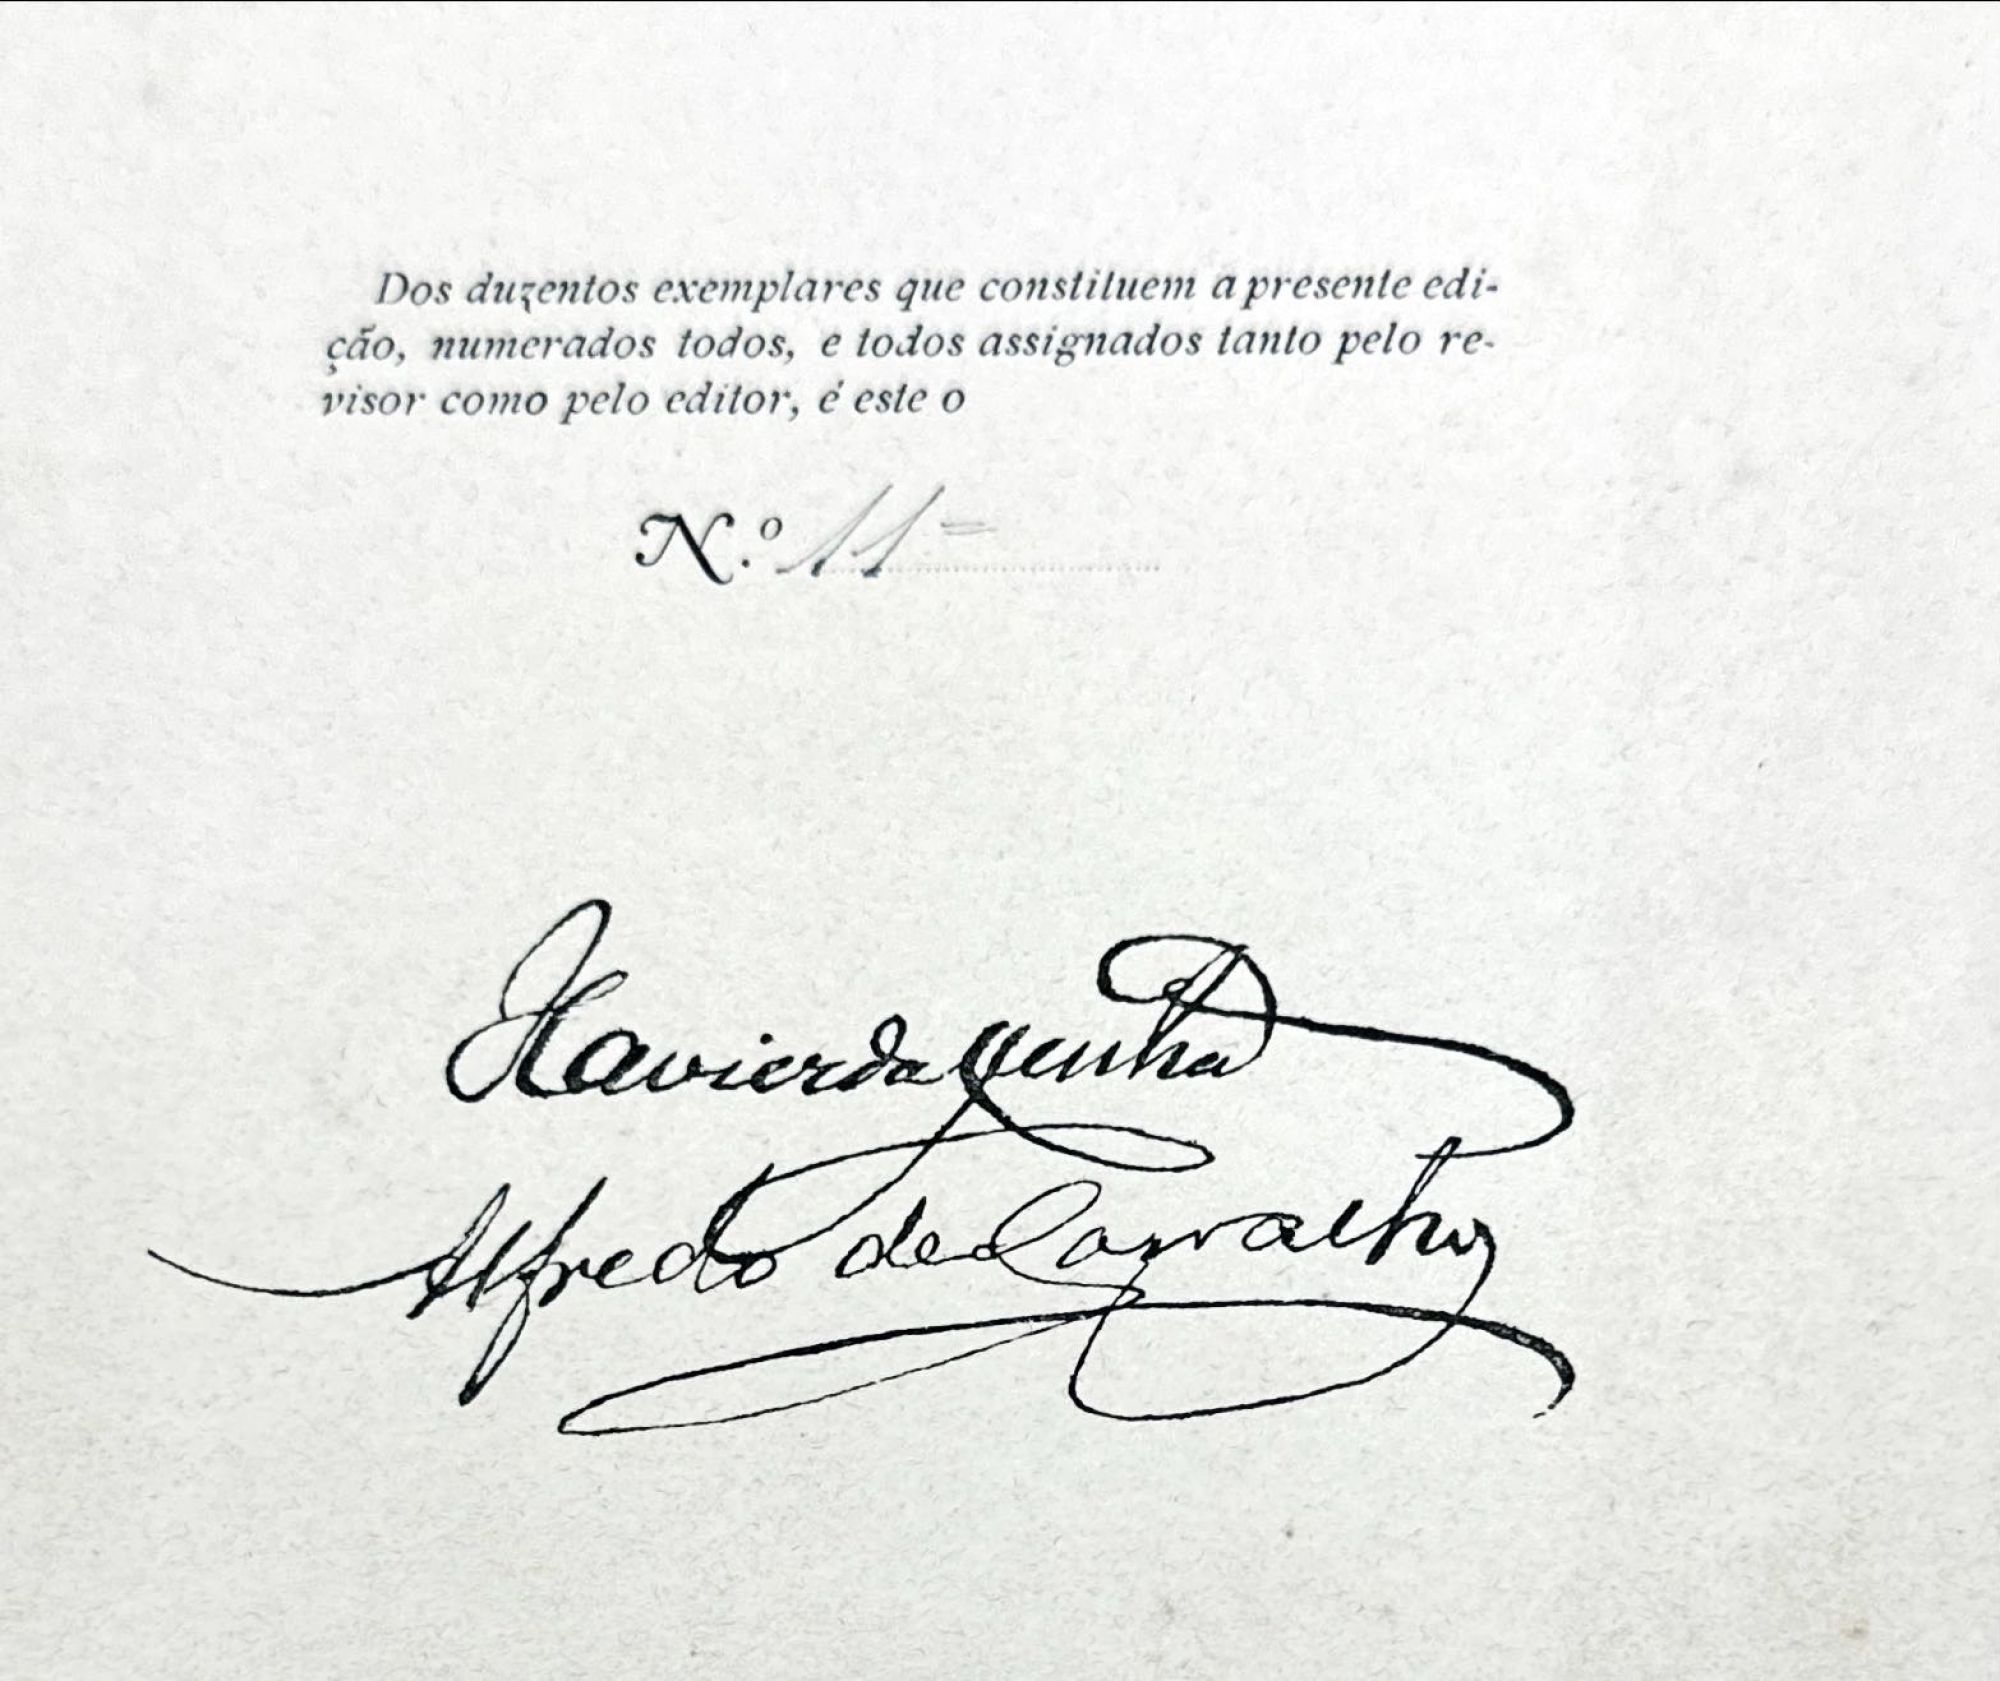 Dos duzentos exemplares que constituem a presente edi-
ção, numerados todos, e todos assignados tanto pelo re-
visor como pelo editor, é este o
N.º 11=
Xavier da Cunha
Alfredo de Carvalho